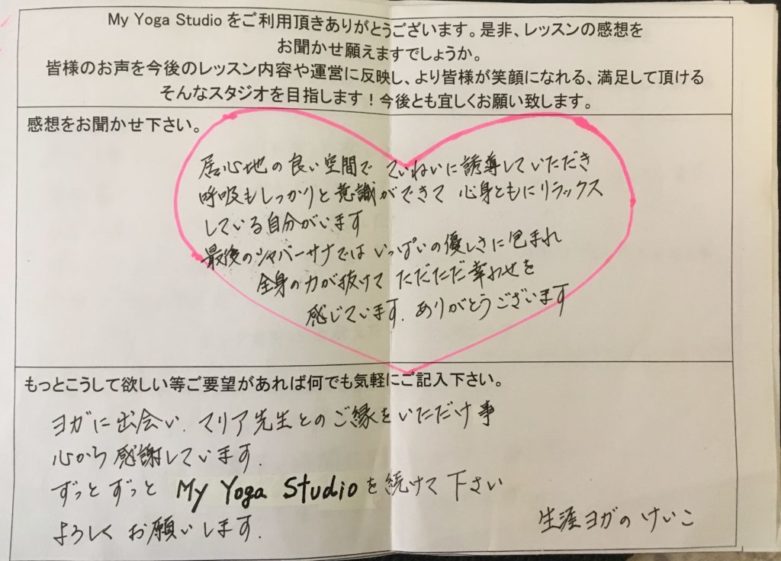 My Yoga Studio をご利用頂きありがとうございます。是非、レッスンの感想を
お聞かせ願えますでしょうか。
皆様のお声を今後のレッスン内容や運営に反映し、より皆様が笑顔になれる、満足して頂ける
そんなスタジオを目指します！今後とも宜しくお願い致します。
感想をお聞かせ下さい。
居心地の良い空間で ていねいに誘導していただき
呼吸もしっかりと意識ができて 心身ともにリラックス
している自分がいます
最後のシャバーサナでは いっぱいの優しさに包まれ
全身の力が抜けて ただただ幸わせを
感じています. ありがとうございます
もっとこうして欲しい等ご要望があれば何でも気軽にご記入下さい。
ヨガに出会い. マリア先生とのご縁をいただけ事
心から感謝しています.
ずっとずっと My Yoga Studioを続けて下さい
よろしくお願いします.
生涯ヨガの けいこ